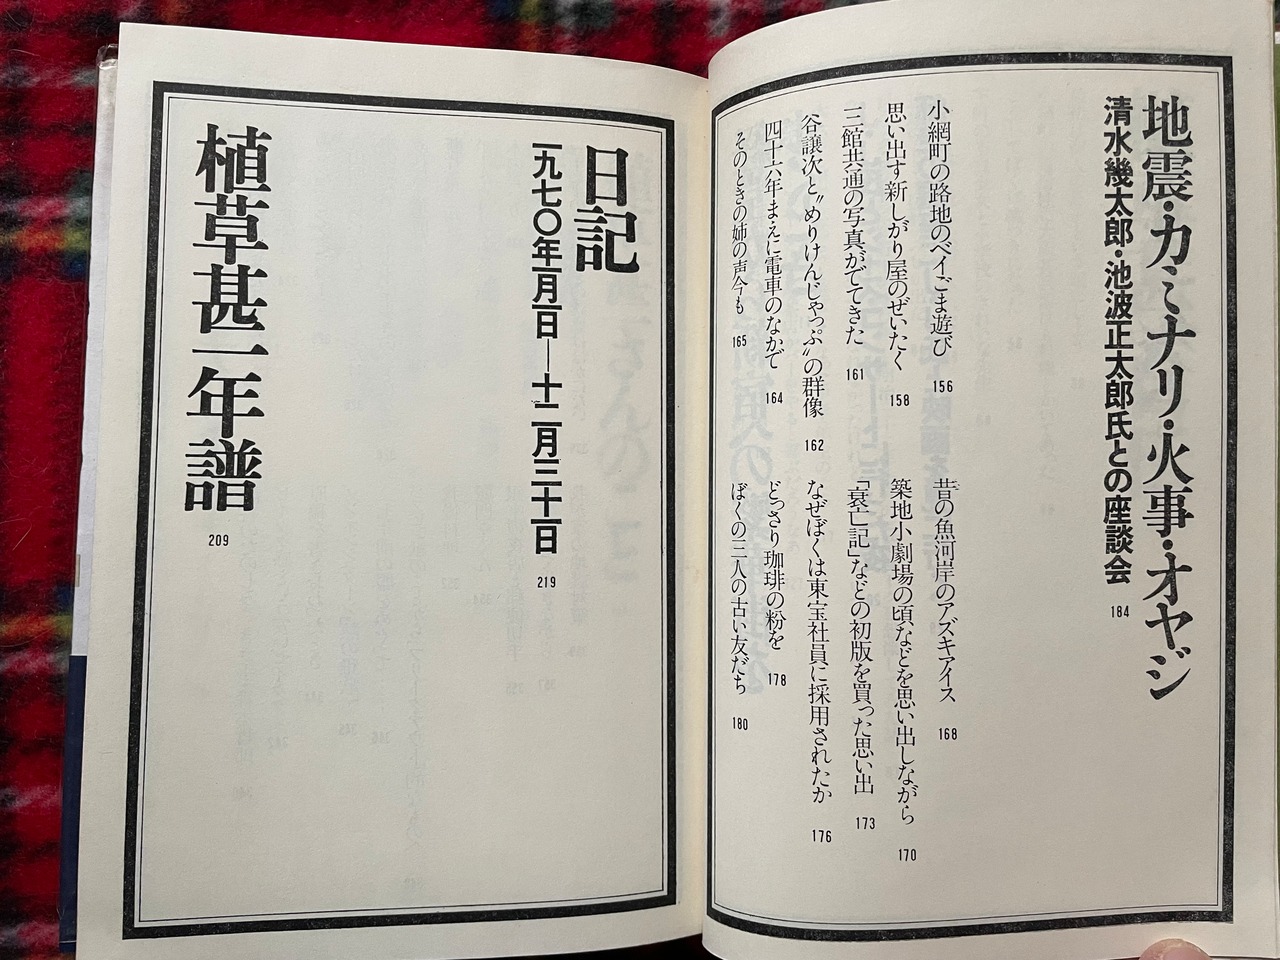 地震・カミナリ・火事・オヤジ
清水幾太郎・池波正太郎氏との座談会 184
小網町の路地のベイごま遊び 156
思い出す新しがり屋のぜいたく 158
三館共通の写真がでてきた 161
谷譲次と〝めりけんじゃっぷ〟の群像 162
四十六年まえに電車のなかで 164
そのときの姉の声今も 165
昔の魚河岸のアズキアイス 168
築地小劇場の頃などを思い出しながら 170
「衰亡記」などの初版を買った思い出 173
なぜぼくは東宝社員に採用されたか 176
どっさり珈琲の粉を 178
ぼくの三人の古い友だち 180
日記
一九七〇年一月一日—十二月三十一日 219
植草甚一年譜 209